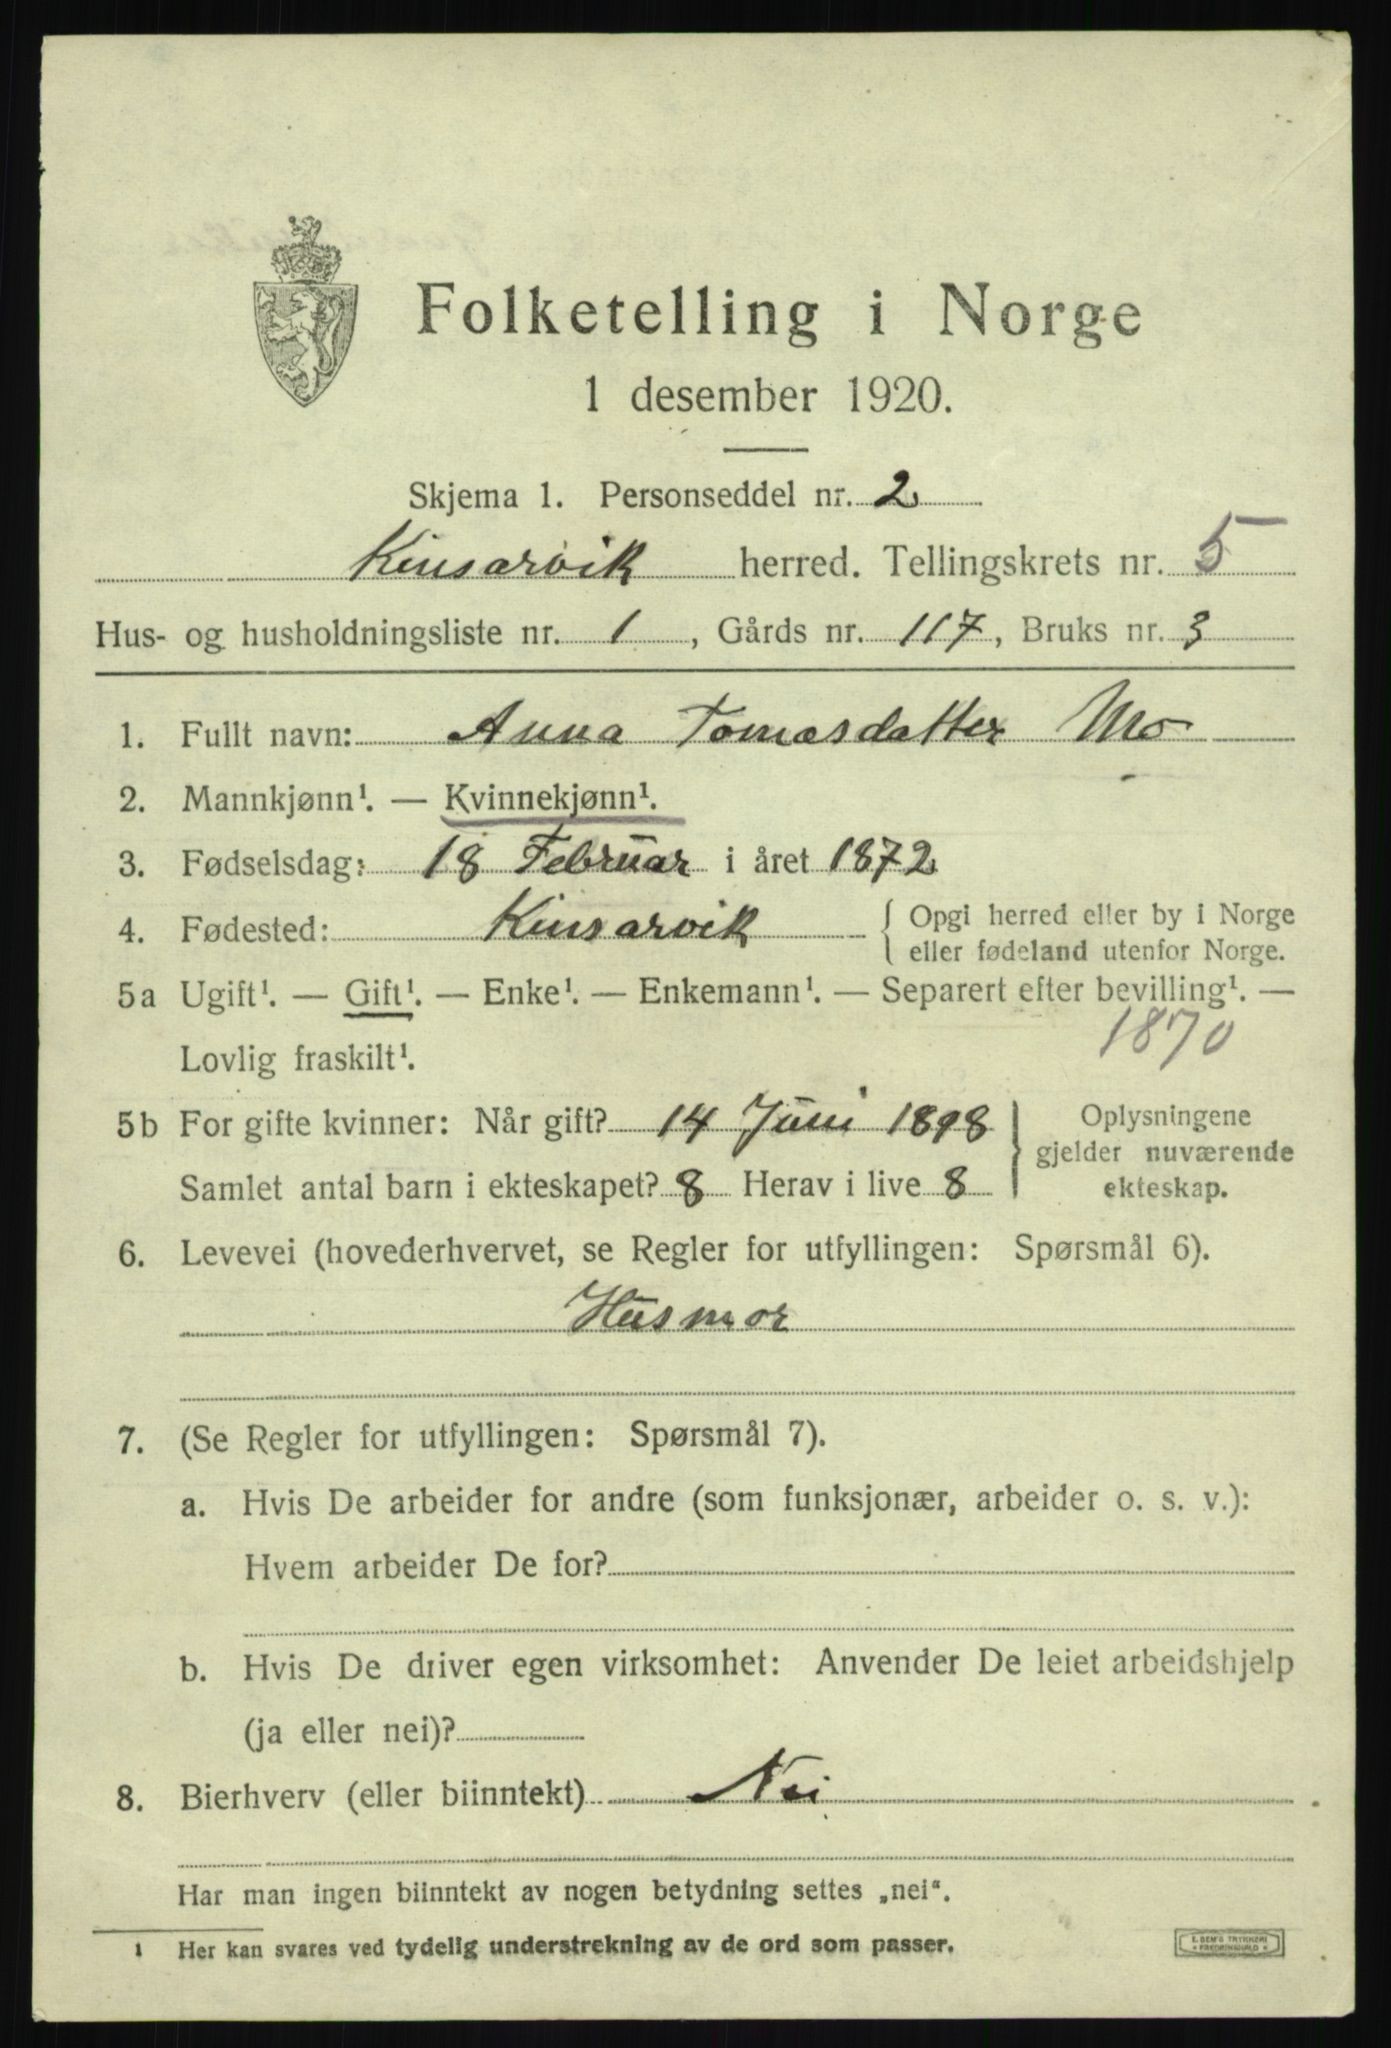 Folketelling i Norge
1 desember 1920.
Skjema 1. Personseddel nr. 2
Kinsarvik herred. Tellingskrets nr. 5
Hus- og husholdningsliste nr. 1, Gårds nr. 117, Bruks nr. 3
1. Fullt navn: Anna Tomasdatter Mo
2. Mannkjønn¹. — Kvinnekjønn¹.
3. Fødselsdag: 18 Februar i året 1872
4. Fødested: Kinsarvik { Opgi herred eller by i Norge
eller fødeland utenfor Norge.
5a Ugift¹. — Gift¹. — Enke¹. — Enkemann¹. — Separert efter bevilling¹. —
Lovlig fraskilt¹. 1870
5b For gifte kvinner: Når gift? 14 Juni 1898 } Oplysningene
gjelder nuværende
Samlet antal barn i ekteskapet? 8 Herav i live 8 ekteskap.
6. Levevei (hovederhvervet, se Regler for utfyllingen: Spørsmål 6).
Husmor
7. (Se Regler for utfyllingen: Spørsmål 7).
a. Hvis De arbeider for andre (som funksjonær, arbeider o. s. v.):
Hvem arbeider De for?
b. Hvis De driver egen virksomhet: Anvender De leiet arbeidshjelp
(ja eller nei)?
8. Bierhverv (eller biinntekt) Nei
Har man ingen biinntekt av nogen betydning settes „nei“.
1 Her kan svares ved tydelig understrekning av de ord som passer.
E. SEM'S TRYKKERI
FREDRIKSHALD